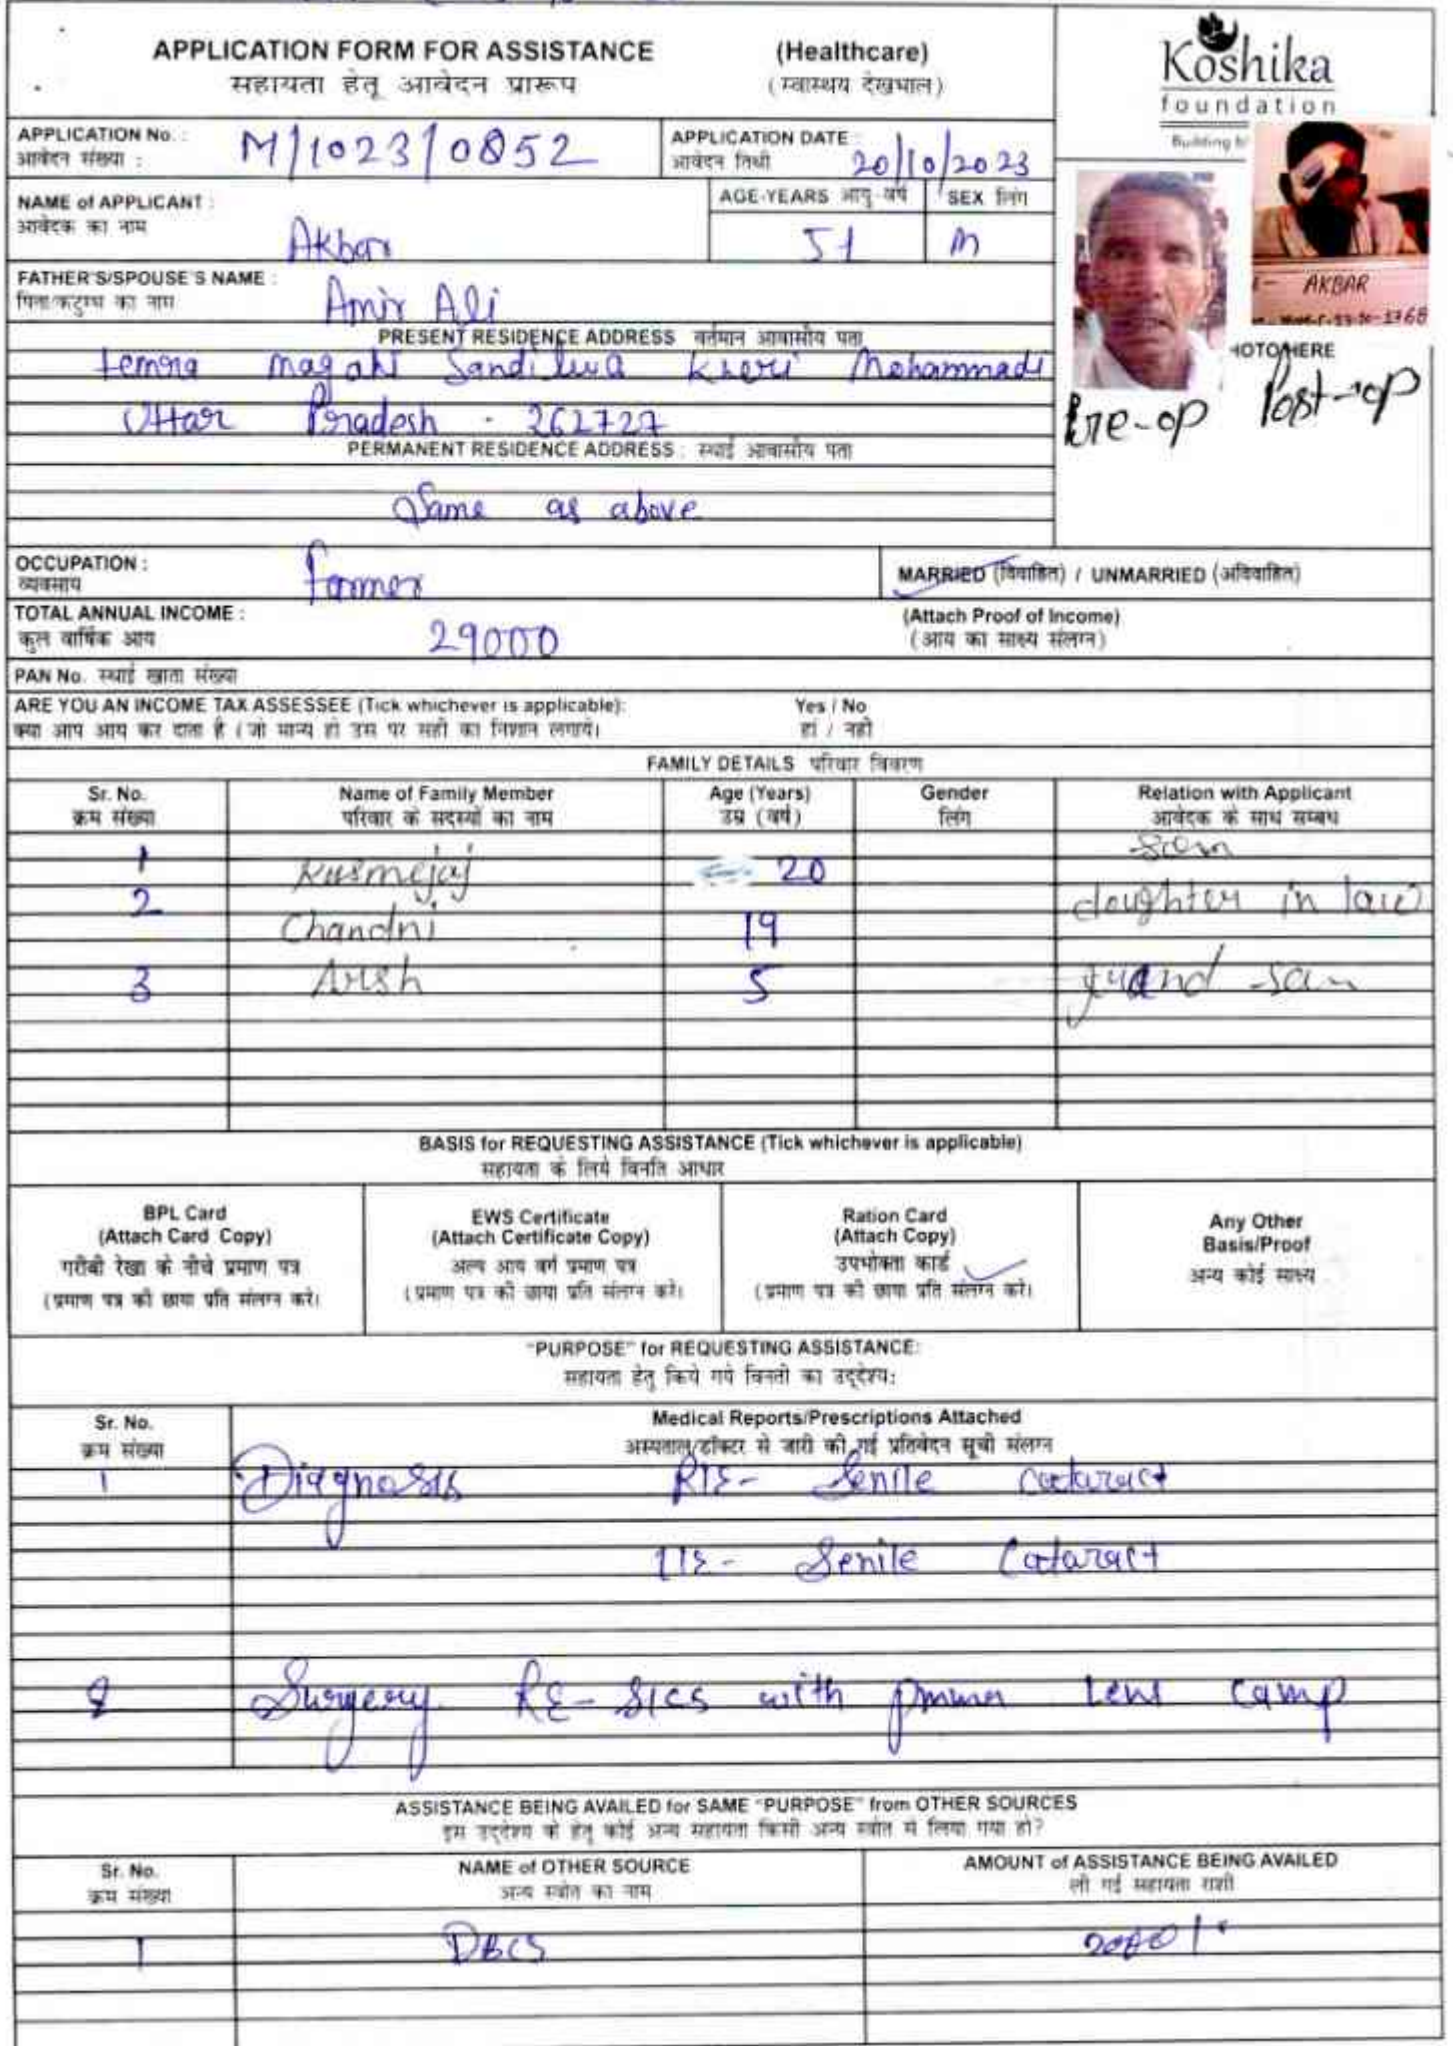 APPLICATION FORM FOR ASSISTANCE (Healthcare)
सहायता हेतू आवेदन प्रारूप (स्वास्थय देखभाल)
Koshika
foundation
Building
APPLICATION No. : M/1023/0852
आवेदन संख्या :
APPLICATION DATE : 20/10/2023
आवेदन तिथी
NAME of APPLICANT : Akbar
आवेदक का नाम
AGE-YEARS आयु-वर्ष SEX लिंग
51 M
FATHER'S/SPOUSE'S NAME : Amir Ali
पिता/कटुम्ब का नाम
AKBAR
1768
PRESENT RESIDENCE ADDRESS वर्तमान आवासीय पता
PHOTO HERE
magahi Sandilwa Kheri Mohammadi
Uttar Pradesh - 262727
Pre-op Post-op
PERMANENT RESIDENCE ADDRESS : स्थाई आवासीय पता
Same as above
OCCUPATION : Farmer
व्यवसाय
MARRIED (विवाहित) / UNMARRIED (अविवाहित)
TOTAL ANNUAL INCOME : 29000
कुल वार्षिक आय
(Attach Proof of Income)
(आय का साक्ष्य संलग्न)
PAN No. स्थाई खाता संख्या
ARE YOU AN INCOME TAX ASSESSEE (Tick whichever is applicable): Yes / No
क्या आप आय कर दाता है (जो मान्य हो उस पर सही का निशान लगाये। हां / नही
FAMILY DETAILS परिवार विवरण
Sr. No. Name of Family Member Age (Years) Gender Relation with Applicant
क्रम संख्या परिवार के सदस्यों का नाम उम्र (वर्ष) लिंग आवेदक के साथ सम्बध
1 Kusmejaj 20 son
2 Chandni 19 daughter in law
3 Arsh 5 grand son
BASIS for REQUESTING ASSISTANCE (Tick whichever is applicable)
सहायता के लिये विनति आधार
BPL Card
(Attach Card Copy)
गरीबी रेखा के नीचे प्रमाण पत्र
(प्रमाण पत्र की छाया प्रति संलग्न करे।
EWS Certificate
(Attach Certificate Copy)
अल्प आय वर्ग प्रमाण पत्र
(प्रमाण पत्र की छाया प्रति संलग्न करे।
Ration Card
(Attach Copy)
उपभोक्ता कार्ड
(प्रमाण पत्र की छाया प्रति संलग्न करे।
Any Other
Basis/Proof
अन्य कोई साक्ष्य
"PURPOSE" for REQUESTING ASSISTANCE:
सहायता हेतु किये गये विनती का उद्देश्य:
Sr. No. Medical Reports/Prescriptions Attached
क्रम संख्या अस्पताल/डॉक्टर से जारी की गई प्रतिवेदन सूची संलग्न
1 Diagnosis RE- Senile Cataract
LE- Senile Cataract
2 Surgery RE- SICS with pmma Lens camp
ASSISTANCE BEING AVAILED for SAME "PURPOSE" from OTHER SOURCES
इस उद्देश्य के हेतु कोई अन्य सहायता किसी अन्य स्त्रोत से लिया गया हो?
Sr. No. NAME of OTHER SOURCE AMOUNT of ASSISTANCE BEING AVAILED
क्रम संख्या अन्य स्त्रोत का नाम ली गई सहायता राशी
1 DBCS 2000/-